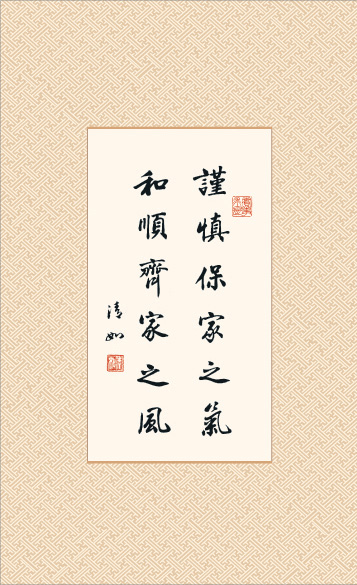 謹慎保家之氣
和順齊家之風
清如